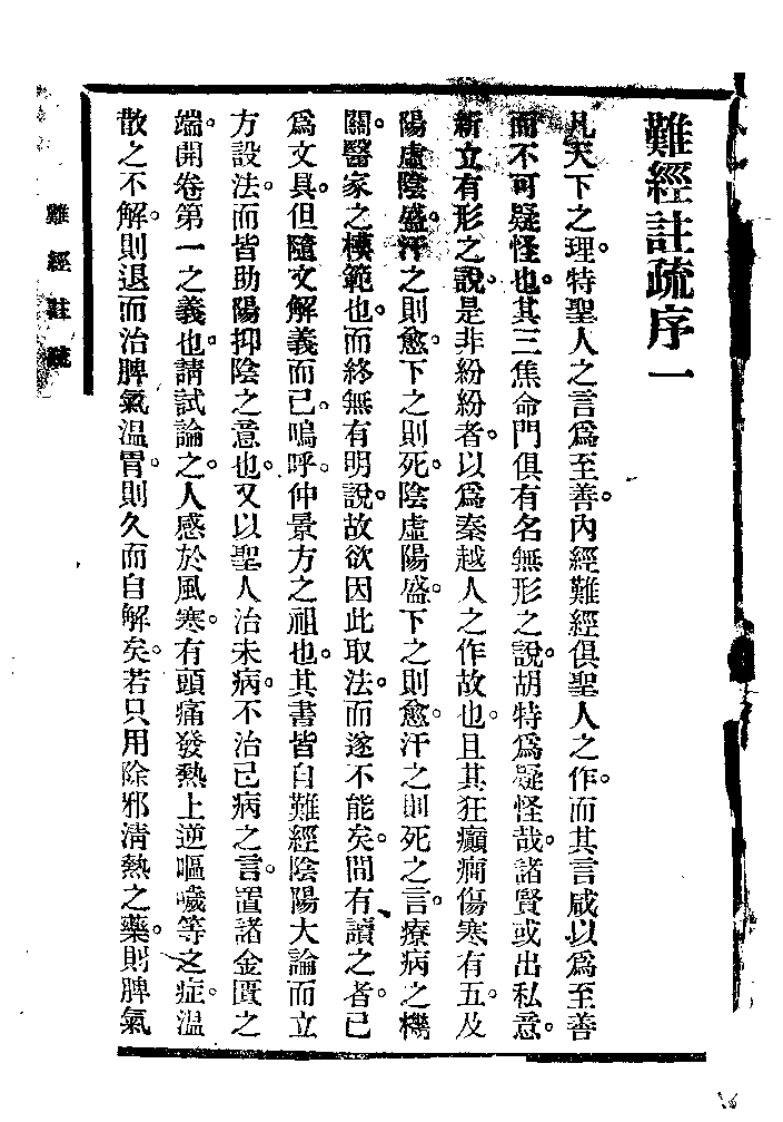 難經註疏序一
凡天下之理。特聖人之言爲至善。內經難經俱聖人之作。而其言咸以爲至善
而不可疑怪也。其三焦命門俱有名無形之說。胡特爲疑怪哉。諸賢或出私意。
新立有形之說。是非紛紛者。以爲秦越人之作故也。且其狂癲癎傷寒有五。及
陽虛陰盛。汗之則愈。下之則死。陰虛陽盛。下之則愈。汗之則死之言。療病之機
關。醫家之模範也。而終無有明說。故欲因此取法。而遂不能矣。間有讀之者。已
爲文具。但隨文解義而已。嗚呼。仲景方之祖也。其書皆自難經陰陽大論而立
方設法。而皆助陽抑陰之意也。又以聖人治未病。不治已病之言。置諸金匱之
端。開卷第一之義也。請試論之。人感於風寒。有頭痛發熱上逆嘔噦等之症。溫
散之不解。則退而治脾氣溫胃。則久而自解矣。若只用除邪清熱之藥。則脾氣
難經註疏